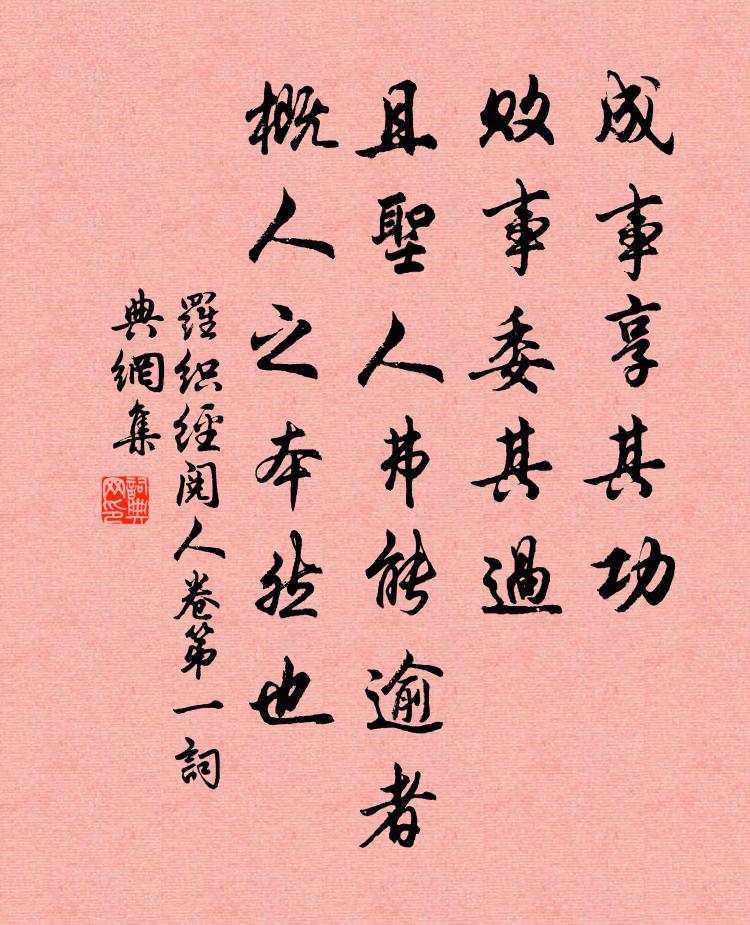 成事享其功
敗事委其過
且聖人弗能逾者
概人之本然也
羅織經閱人卷第一詞
典網集
詞典網印